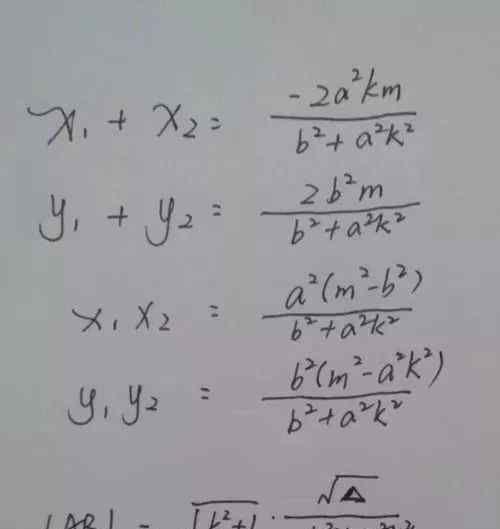 x₁ + x₂ = -2a²km / b² + a²k²
y₁ + y₂ = 2b²m / b² + a²k²
x₁x₂ = a²(m²-b²) / b² + a²k²
y₁y₂ = b²(m²-a²k²) / b² + a²k²
|AB| = √k²+1 · √Δ